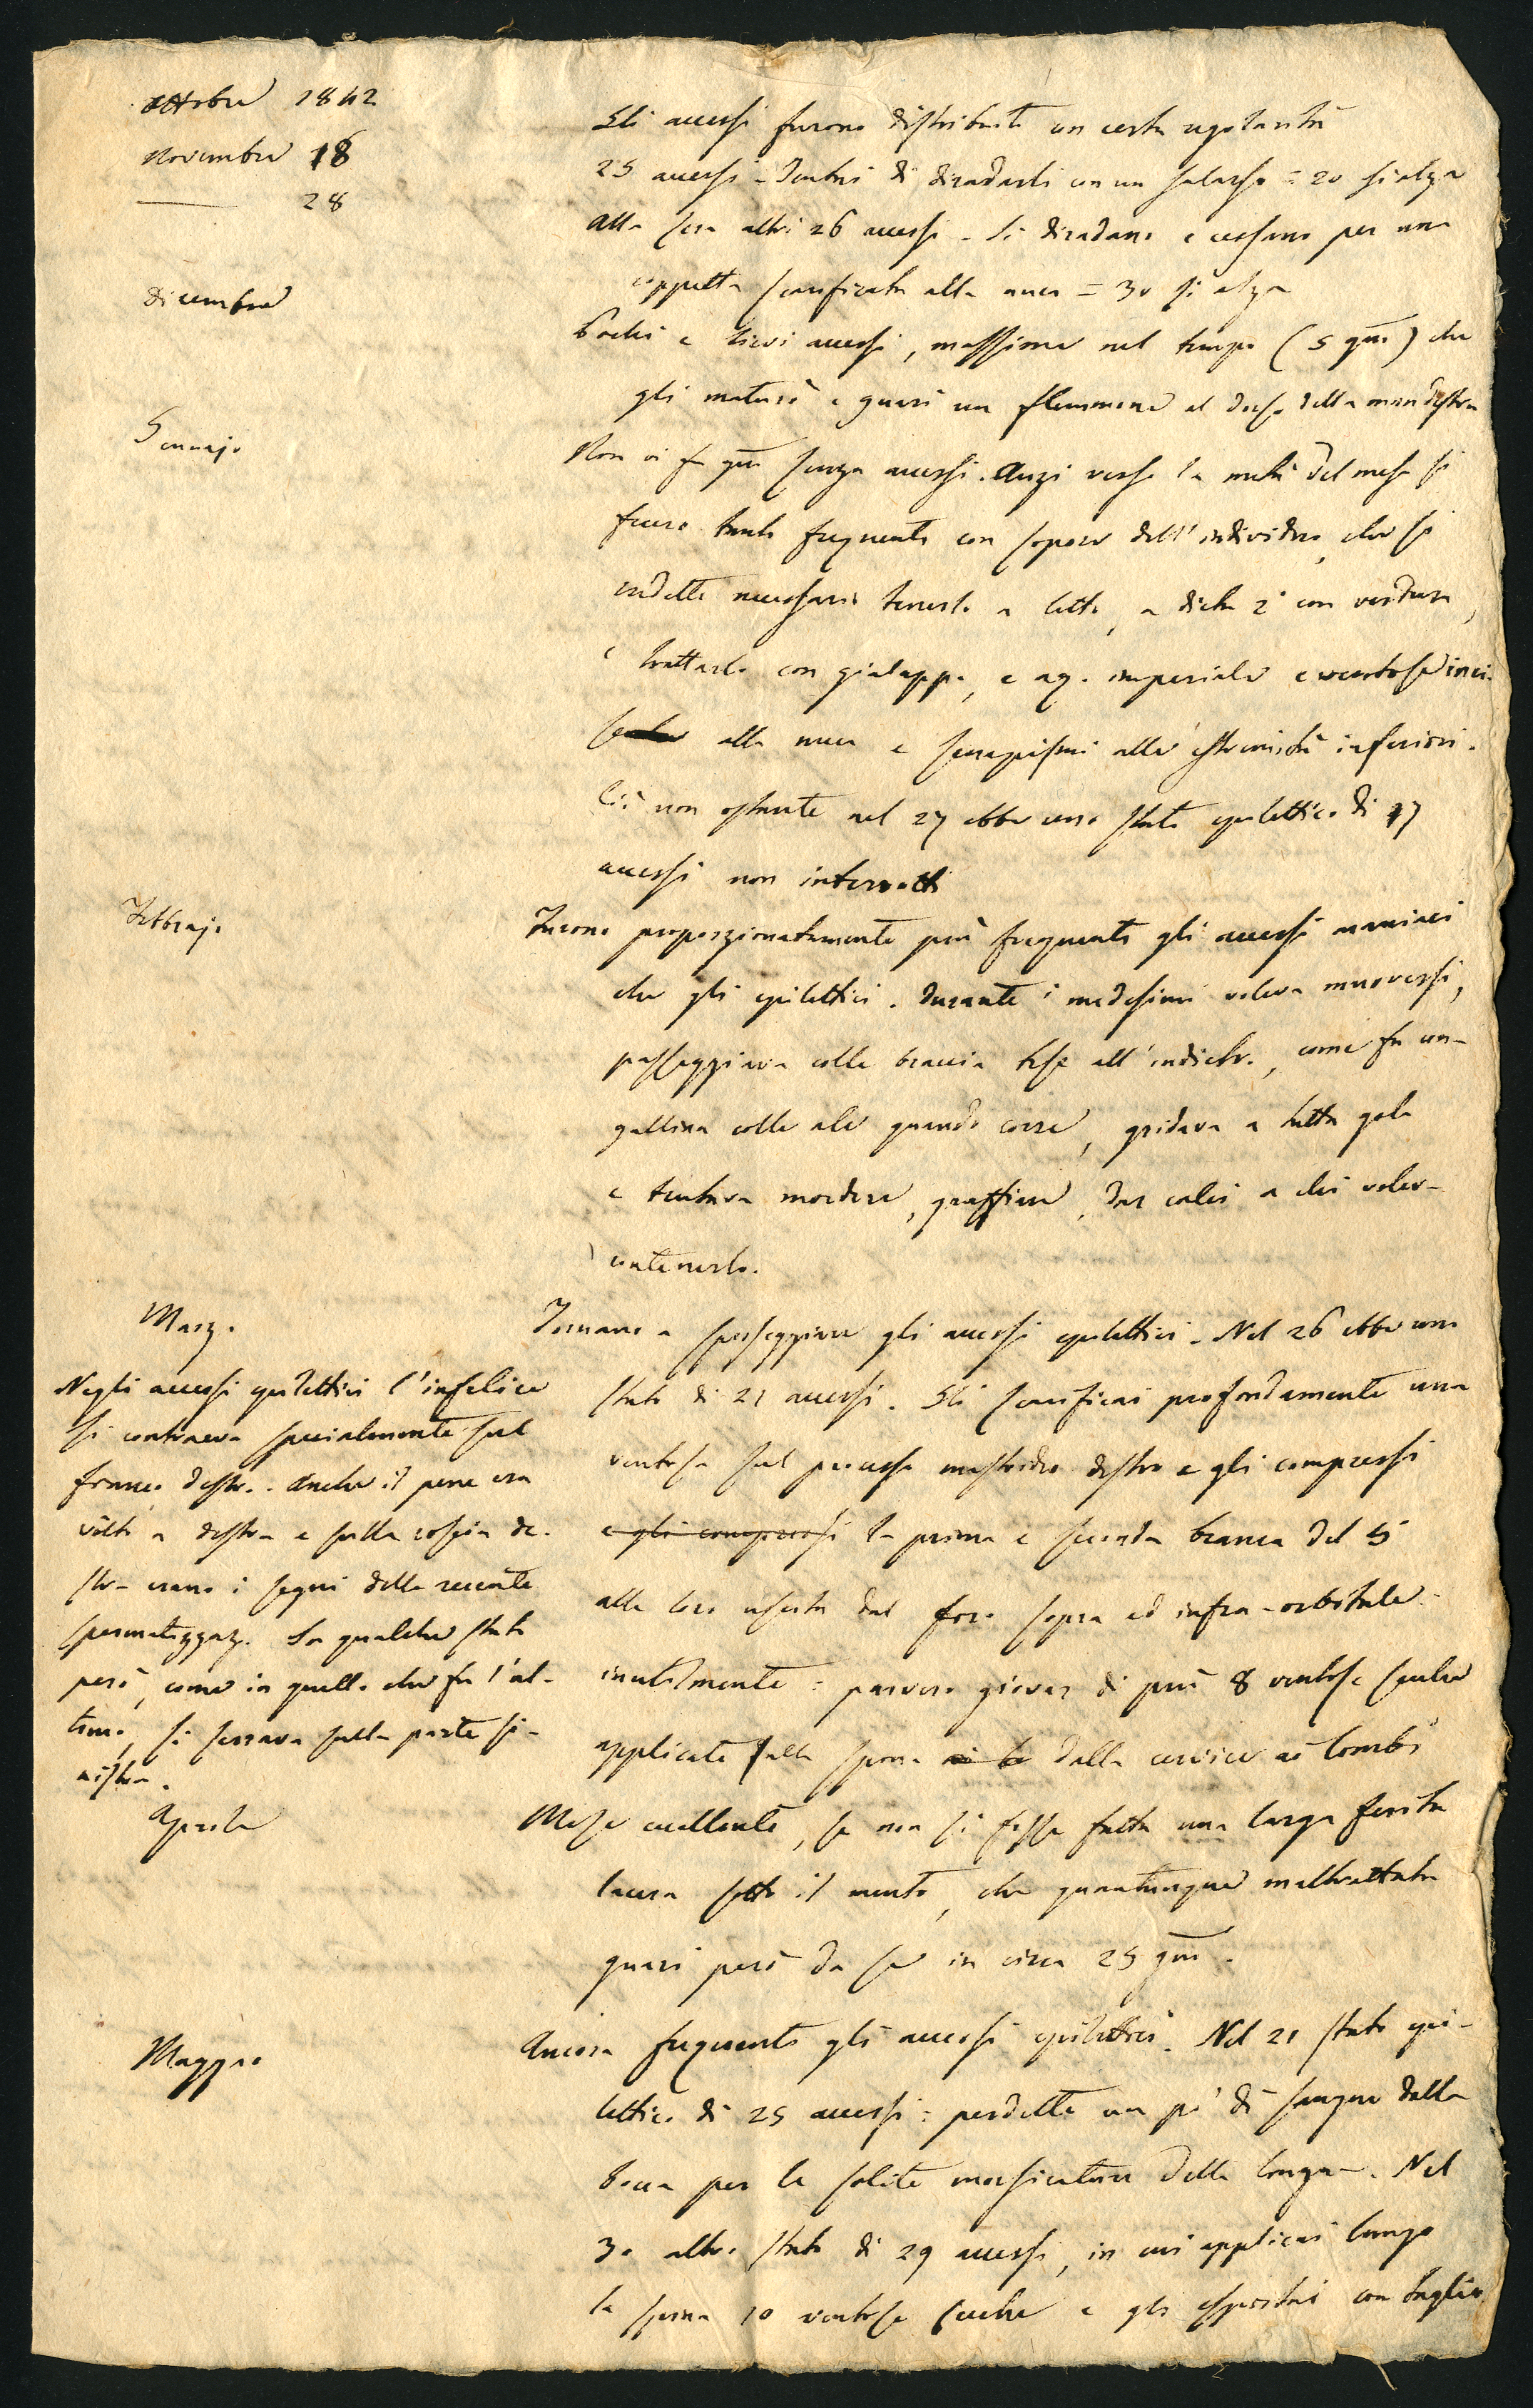 ottobre 1842
Gli accessi furono distribuiti con certa regolarità
novembre 18
25 accessi - Tentai di diradarli con un salasso = 20 si alza
28
alla sera altri 26 accessi - Si diradano e cessano per una
coppetta scarificata alla nuca = 30 si alza
dicembre
Pochi e lievi accessi, massime nel tempo (5 gni) che
gli maturò e guarì un flemmone al dorso della man destra
Gennajo
Non vi fu gno senza accessi. Anzi verso la metà del mese si
fecero tanto frequenti con sopore dell'individuo, che si
rendette necessario tenerlo a letto, a dieta 2a con verdura,
e trattarlo con gialappa, e aq. imperiale e ventose inci-
se alla nuca e senapismi alle estremità inferiori.
Ciò non ostante nel 27 ebbe uno stato epilettico di 17
accessi non interrotti
Febbrajo
Furono proporzionatamente più frequenti gli accessi maniaci
che gli epilettici. Durante i medesimi voleva muoversi,
passeggiava colle braccia tese all'indietro, come fa una
gallina colle ale quando corre, gridava a tutta gola
e tentava mordere, graffiare, dar calci a chi voleva
contenerlo.
Marzo
Tornano a spesseggiare gli accessi epilettici. Nel 26 ebbe uno
stato di 21 accessi. Gli scarificai profondamente una
ventosa sul processo mastoideo destro e gli compressi
e gli compressi la prima e seconda branca del 5
alla loro uscita dal foro sopra ed infra-orbitale
inutilmente = parvero giovar di più 8 ventose secche
applicate sulla spina dalla cervice ai lombi
Negli accessi epilettici l'infelice
si contraeva specialmente sul
fianco destro. Anche il pene era
volto a destra e sulla coscia de-
stra erano i segni della recente
spermatizzaz. In qualche stato
però, come in quello che fu l'ul-
timo, si serrava sulla parte si-
nistra.
Aprile
Mese eccellente, se non si fosse fatta una larga ferita
lacera sotto il mento, che quantunque maltrattata
guarì però da se in circa 25 gni.
Maggio
Ancora frequenti gli accessi epilettici. Nel 21 stato epi-
lettico di 25 accessi = perdette un po' di sangue dalla
bocca per le solite morsicature della lingua. Nel
30 altro stato di 29 accessi, in cui applicai lungo
la spina 10 ventose secche e gli esportai con taglio